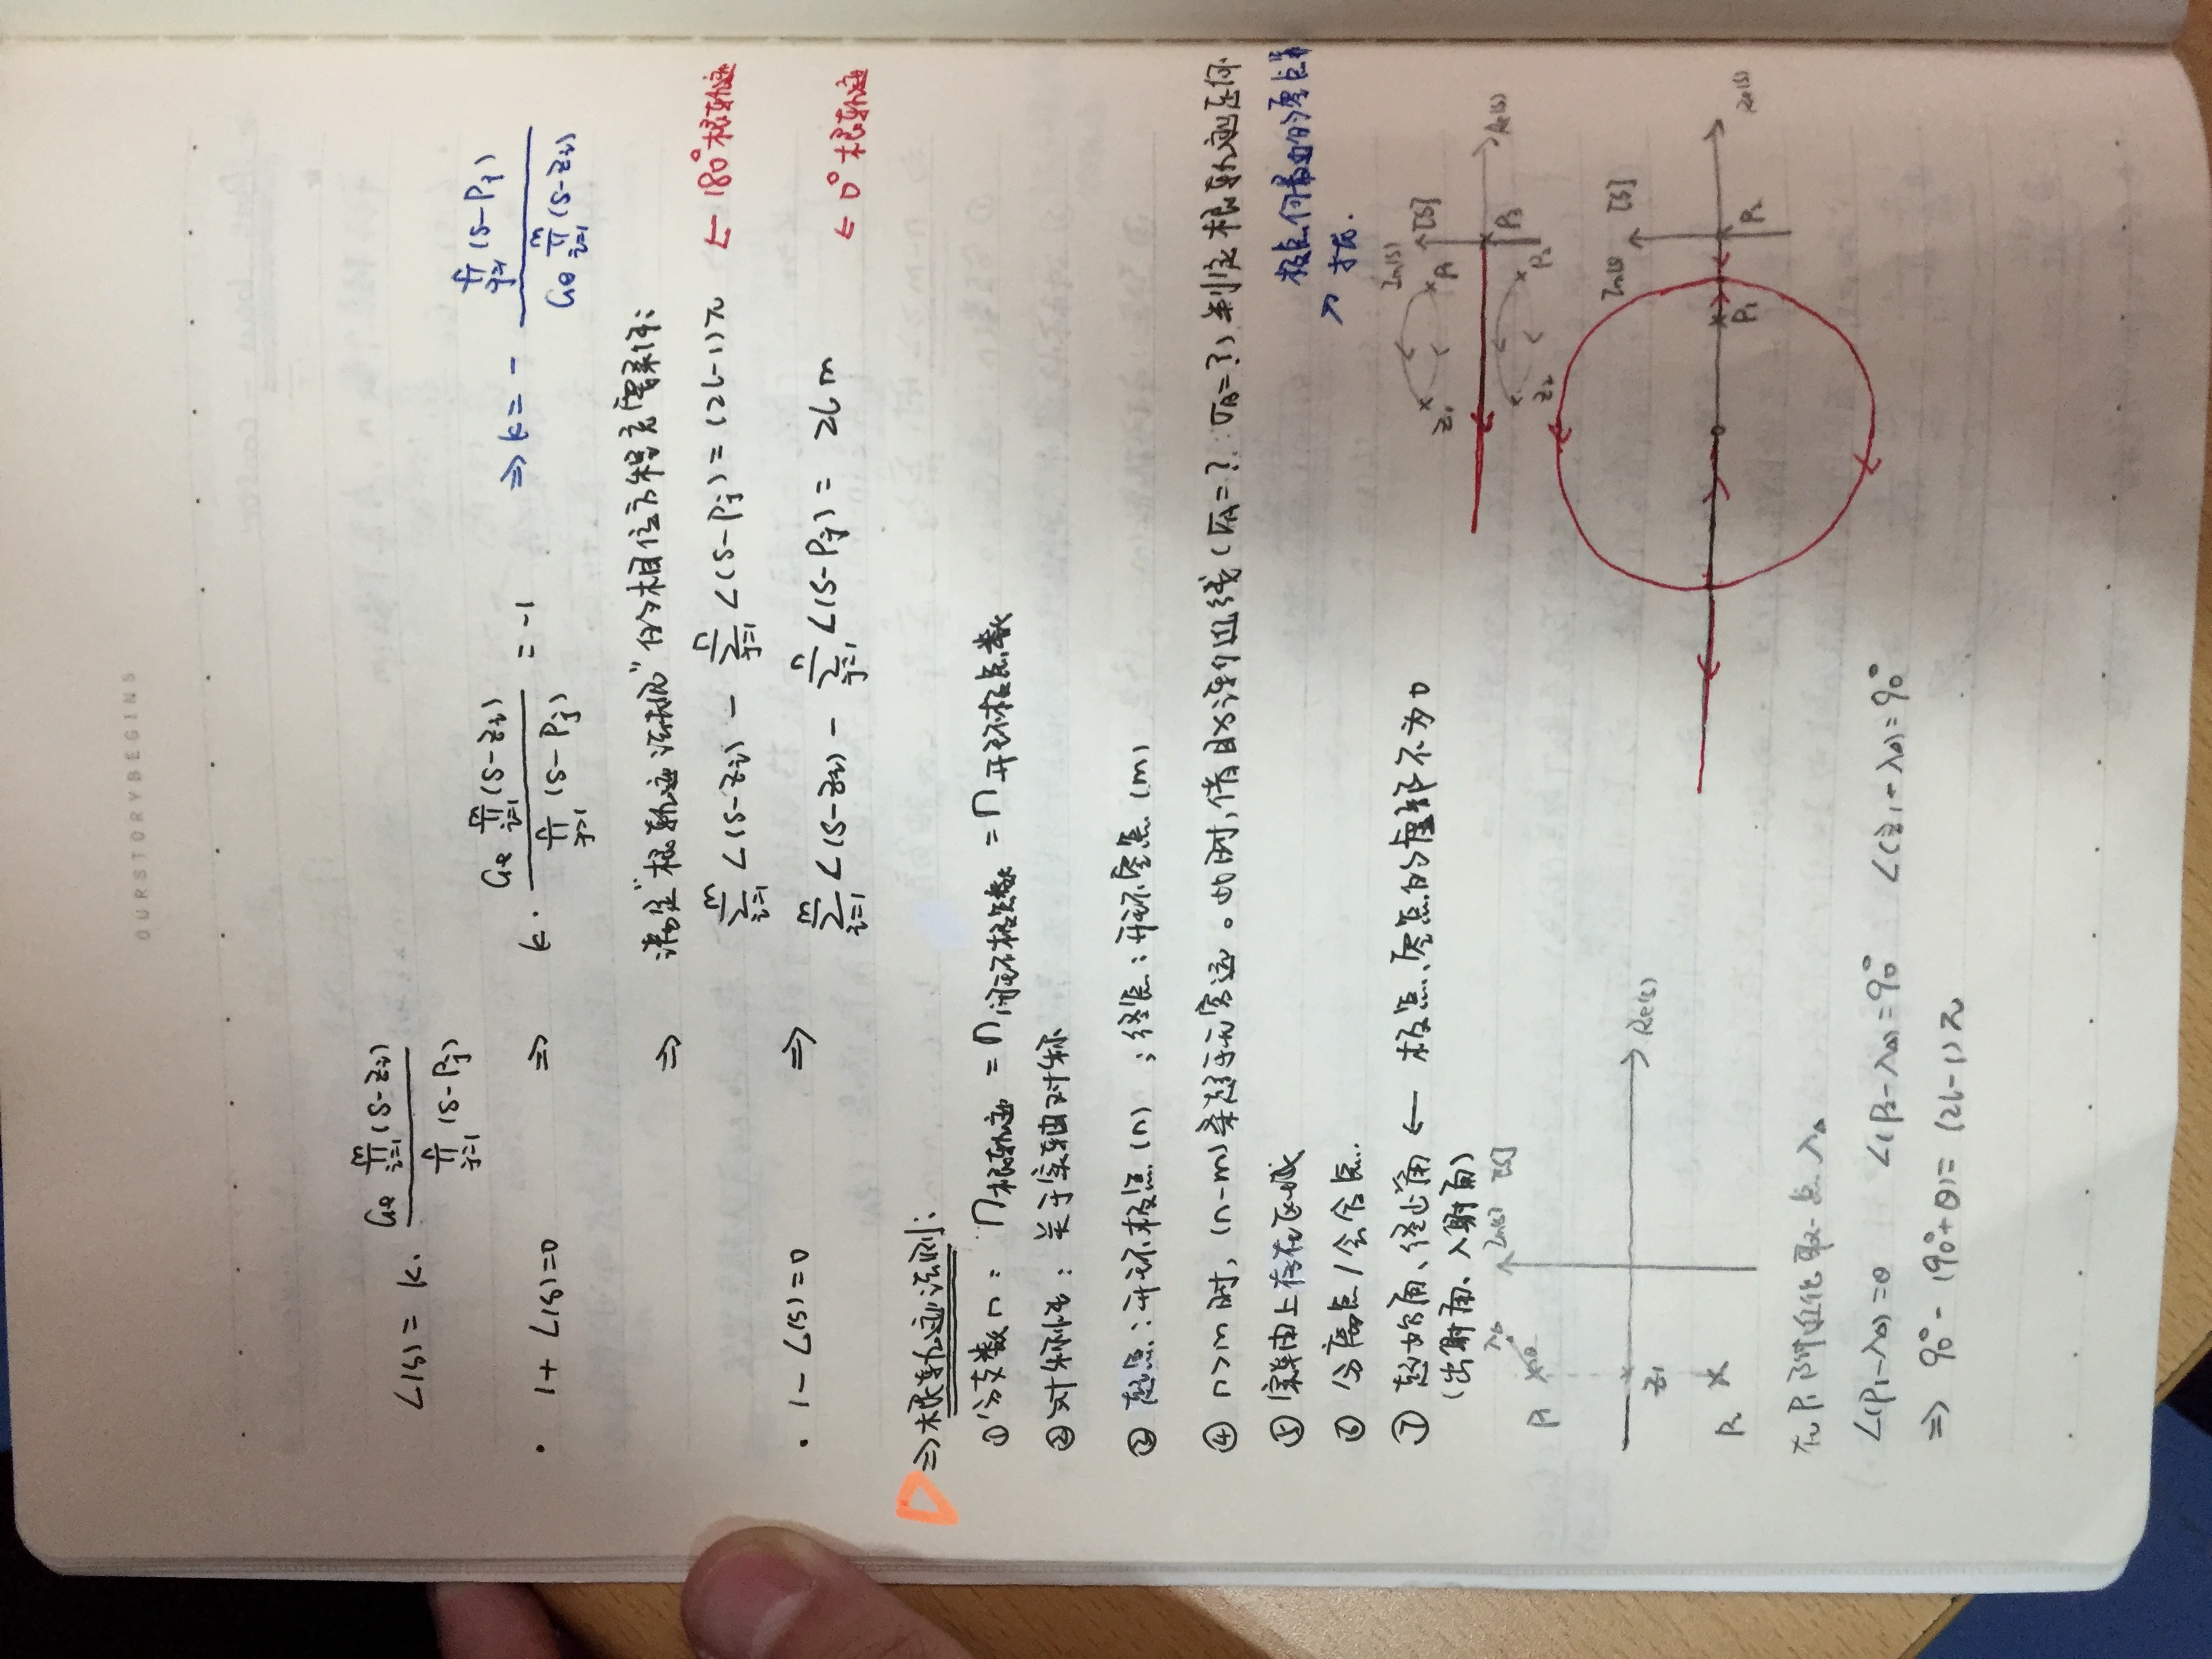 OURSTORYBEGINS
L(s) = k · G₀ ∏ᵢ₌₁ᵐ (s-zᵢ) / ∏ⱼ₌₁ⁿ (s-Pⱼ)
· 1 + L(s) = 0 ⇒ k · G₀ ∏ᵢ₌₁ᵐ (s-zᵢ) / ∏ⱼ₌₁ⁿ (s-Pⱼ) = -1 ⇒ k = - ∏ⱼ₌₁ⁿ (s-Pⱼ) / G₀ ∏ᵢ₌₁ᵐ (s-zᵢ)
⇒ 满足"根轨迹法则"的相位方程充要条件:
∑ᵢ₌₁ᵐ ∠(s-zᵢ) - ∑ⱼ₌₁ⁿ ∠(s-Pⱼ) = (2l-1)π ← 180°根轨迹
· 1 - L(s) = 0 ⇒ ∑ᵢ₌₁ᵐ ∠(s-zᵢ) - ∑ⱼ₌₁ⁿ ∠(s-Pⱼ) = 2lπ ← 0°根轨迹
⇒ 根轨迹法则:
① 分支数n: n根轨迹 = n闭环极点数 = n开环极点数
② 对称性: 关于实轴对称
③ 起点:开环极点(n) ;终点:开环零点(m)
④ n>m时, (n-m)条趋于无穷远。此时,借助渐近线( =? =?)判定根轨迹走向
⑤ 实轴上存在区域
极点向最近的零点
⑥ 分离点/会合点.
⑦ 起始角、终止角 ← 极点、零点的虚部不为0
(出射角、入射角)
Im(s) [S]
z₁ P₁
Re(s)
P₃
z₂ P₂
λ₀ Im(s) [S]
P₁ θ
Re(s)
z₁
P₂
Im(s) [S]
P₁ P₂ Re(s)
在P₁附近任取一点λ₀
∠(P₁-λ₀)=θ ∠(P₂-λ₀)=90° ∠(z₁-λ₀)=90°
⇒ 90° - (90°+θ) = (2l-1)π